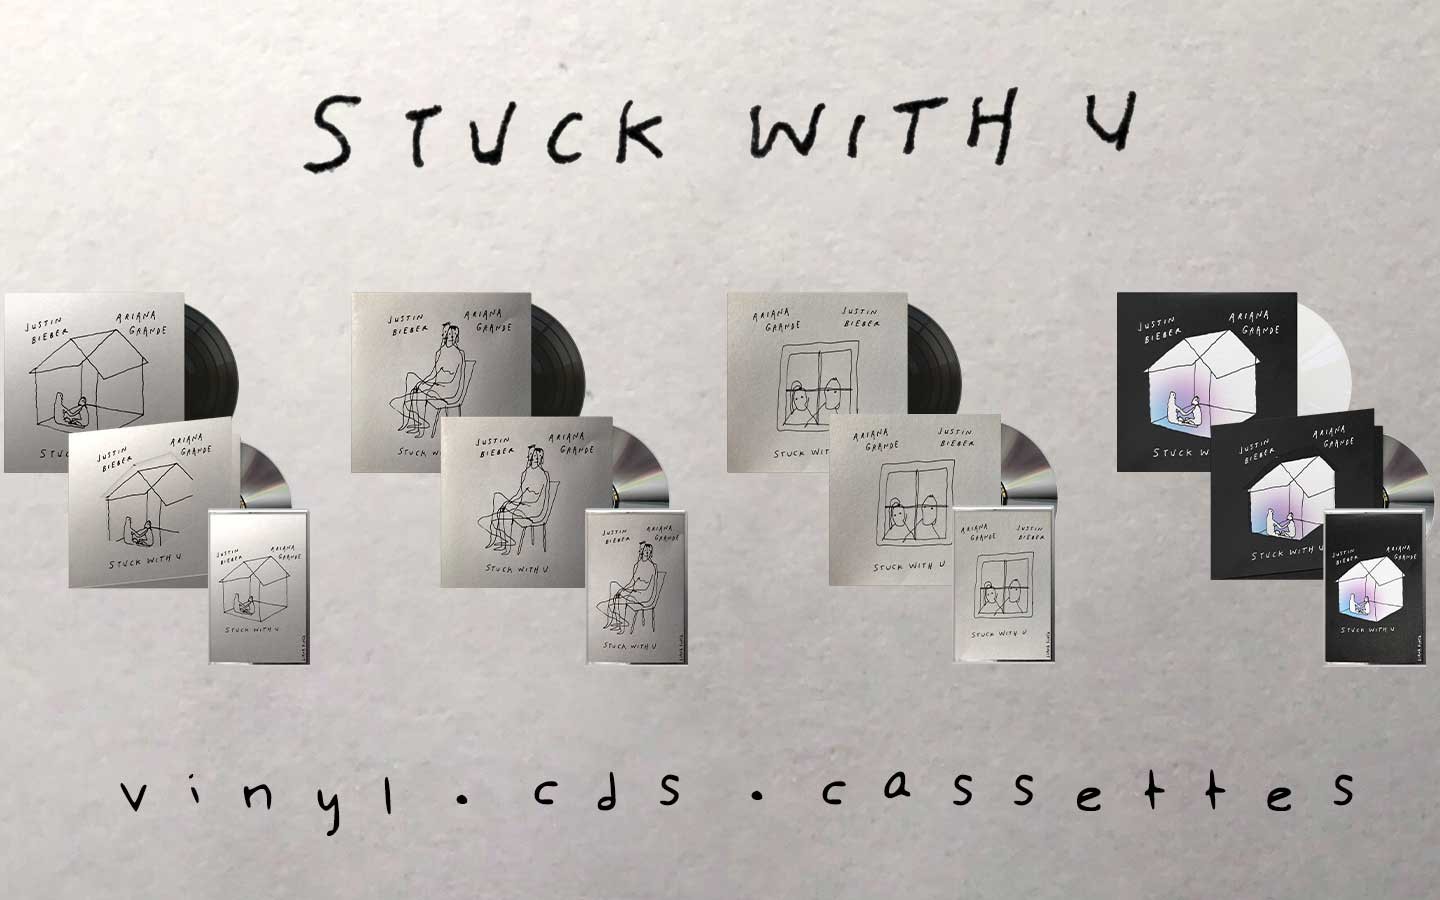 STUCK WITH U
JUSTIN BIEBER
ARIANA GRANDE
STUC
JUSTIN BIEBER
ARIANA GRANDE
STUCK WITH U
JUSTIN BIEBER
ARIANA GRANDE
STUCK WITH U
JUSTIN BIEBER
ARIANA GRANDE
STUCK W
JUSTIN BIEBER
ARIANA GRANDE
STUCK WITH U
JUSTIN BIEBER
ARIANA GRANDE
STUCK WITH U
ARIANA GRANDE
JUSTIN BIEBER
STUCK WIT
ARIANA GRANDE
JUSTIN BIEBER
STUCK WITH U
ARIANA GRANDE
JUSTIN BIEBER
STUCK WITH U
JUSTIN BIEBER
ARIANA GRANDE
STUCK W
JUSTIN BIEBER
ARIANA GRANDE
STUCK WITH U
JUSTIN BIEBER
ARIANA GRANDE
STUCK WITH U
vinyl • cds • cassettes